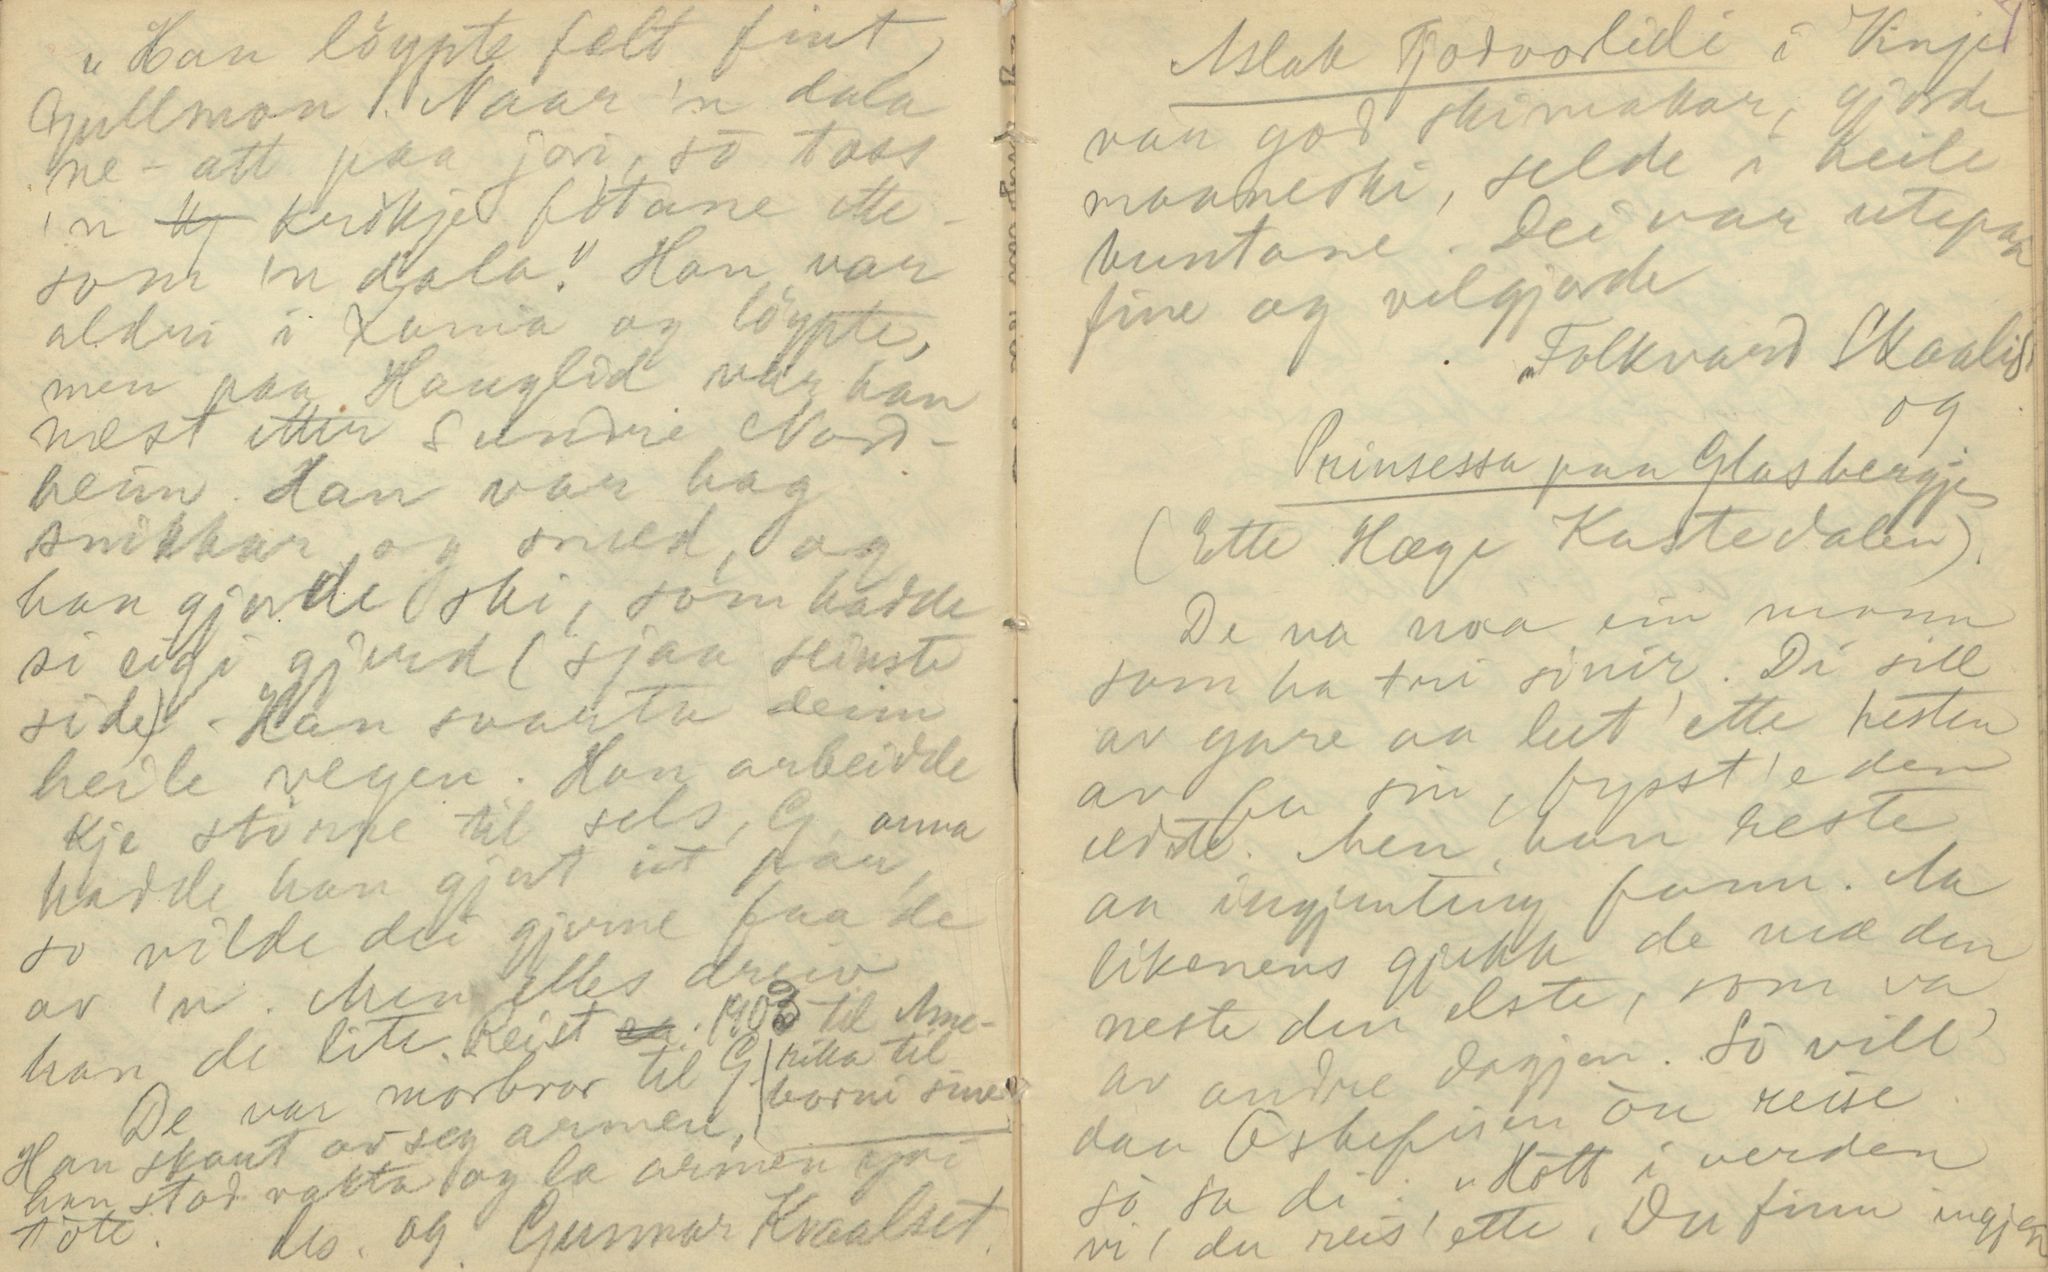 "Han löypte felt fint,
Gullmon. Naar 'n dala
ne-att paa jori, so toos
'n kerkje fötane ette-
som 'n dala." Han var
aldri i Xania og löypte,
men paa Hauglid var han
næst etter Sundre Nord-
heim. Han var hag
snikkar og smed, og
han gjorde ski, som hadde
si eigi gjerd (sjaa seinste
side). Han svarta deim
heile vegen. Han arbeidde
kje större til sels, G. anna
hadde han gjort it par,
so vilde dei gjerne faa de
av 'n. Men elles dreiv
han de lite. Reist 1903 til Ame-
rika til
borni sine
De var morbror til G.
Han skaut av seg armen,
han stod vakta og la armen ivi
töte. As. og Gunnar Kvaalset.
Aslak Tjodvorlidi i Vinje
van god skimakar, gjorde
maaneski, selde i heile
buntane. Dei var utepaa
fine og velgjorde
"Folkvard Skaalid
og
Prinsessa paa Glasbergje
(Ette Hæge Kastedalen).
De va noa ein mann
som ha tri sinir. Di sill
av gare aa leit' ette hesten
av fa sin, fysst' e den
eldste. Men han reste
aa ingjenting fann. Aa
likeneins gjekk de mæ den
neste den elste, som va
av andre dagjen. Sö vill'
daa Öskefisen ön reise
sö sa di: "Hött i verden
vi' du reis' ette, Du finn ingjen